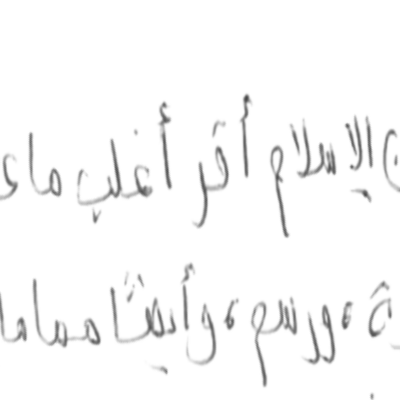 ن الإسلام أقر أغلب ما ع
ة، ورسم، وأيضًا مما ما